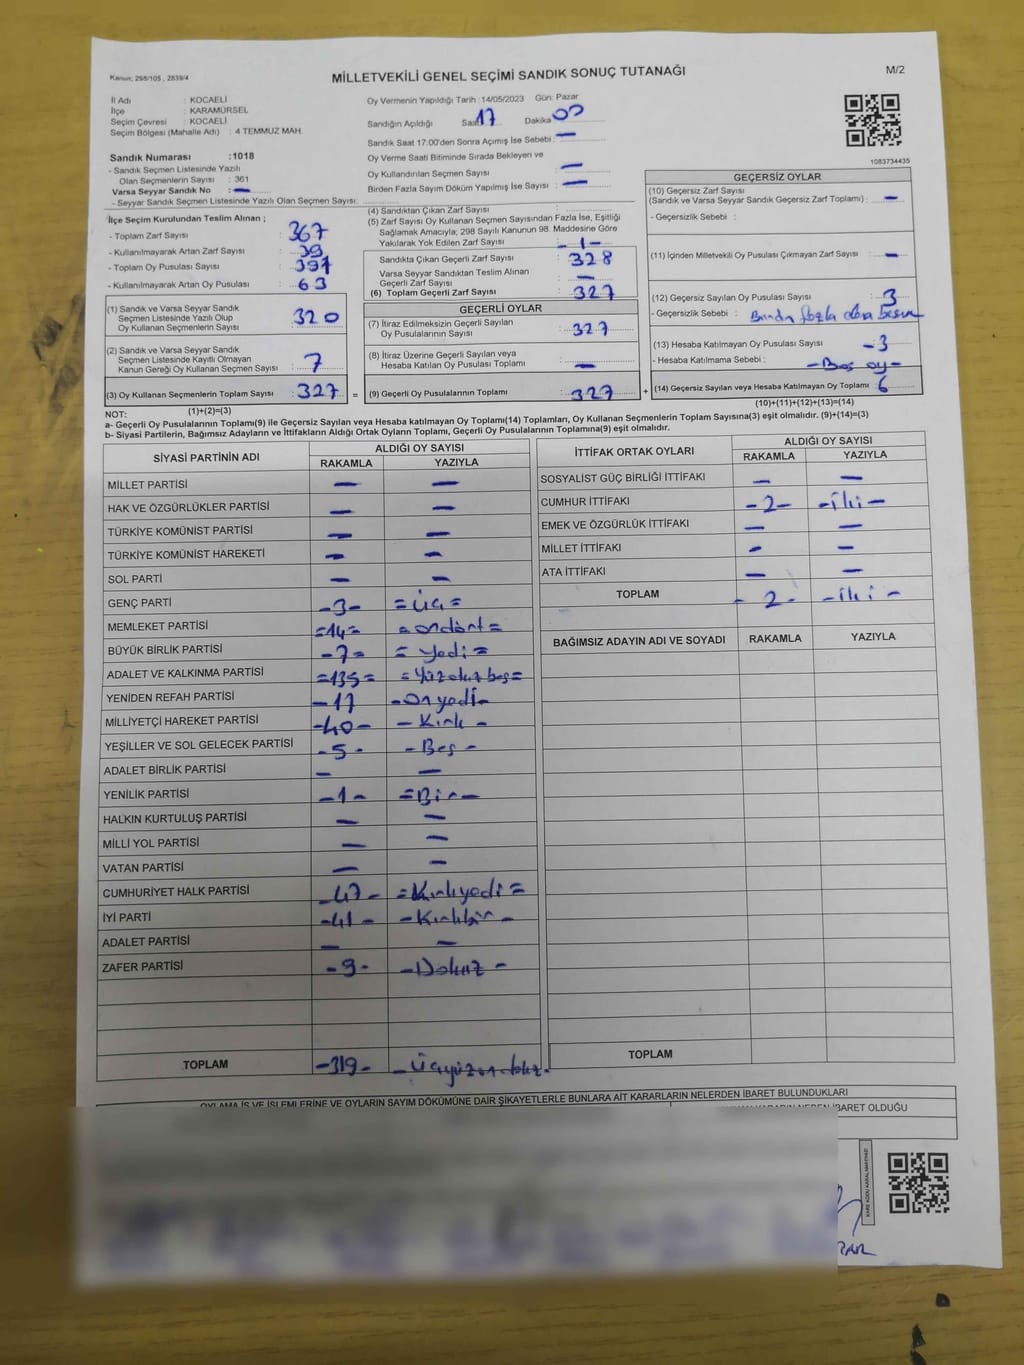 Kanun; 298/105 , 2839/4
MİLLETVEKİLİ GENEL SEÇİMİ SANDIK SONUÇ TUTANAĞI
M/2
İl Adı : KOCAELİ
İlçe : KARAMÜRSEL
Seçim Çevresi : KOCAELİ
Seçim Bölgesi (Mahalle Adı) : 4 TEMMUZ MAH.
Oy Vermenin Yapıldığı Tarih :14/05/2023 Gün: Pazar
Sandığın Açıldığı Saat 17 Dakika 00
Sandık Saat 17:00'den Sonra Açımış İse Sebebi : —
Oy Verme Saati Bitiminde Sırada Bekleyen ve
Oy Kullandırılan Seçmen Sayısı —
Birden Fazla Sayım Döküm Yapılmış İse Sayısı : —
1083734435
Sandık Numarası :1018
- Sandık Seçmen Listesinde Yazılı
Olan Seçmenlerin Sayısı : 361
Varsa Seyyar Sandık No : —
- Seyyar Sandık Seçmen Listesinde Yazılı Olan Seçmen Sayısı:
İlçe Seçim Kurulundan Teslim Alınan ;
- Toplam Zarf Sayısı : 367
- Kullanılmayarak Artan Zarf Sayısı : 39
- Toplam Oy Pusulası Sayısı : 397
- Kullanılmayarak Artan Oy Pusulası : 63
(1) Sandık ve Varsa Seyyar Sandık
Seçmen Listesinde Yazılı Olup
Oy Kullanan Seçmenlerin Sayısı 320
(2) Sandık ve Varsa Seyyar Sandık
Seçmen Listesinde Kayıtlı Olmayan
Kanun Gereği Oy Kullanan Seçmen Sayısı : 7
(3) Oy Kullanan Seçmenlerin Toplam Sayısı : 327
(1)+(2)=(3)
(4) Sandıktan Çıkan Zarf Sayısı
(5) Zarf Sayısı Oy Kullanan Seçmen Sayısından Fazla İse, Eşitliği
Sağlamak Amacıyla; 298 Sayılı Kanunun 98. Maddesine Göre
Yakılarak Yok Edilen Zarf Sayısı : -1-
Sandıkta Çıkan Geçerli Zarf Sayısı : 328
Varsa Seyyar Sandıktan Teslim Alınan
Geçerli Zarf Sayısı : —
(6) Toplam Geçerli Zarf Sayısı : 327
GEÇERLİ OYLAR
(7) İtiraz Edilmeksizin Geçerli Sayılan
Oy Pusulalarının Sayısı : 327
(8) İtiraz Üzerine Geçerli Sayılan veya
Hesaba Katılan Oy Pusulası Toplamı : —
= (9) Geçerli Oy Pusulalarının Toplamı : 327 +
GEÇERSİZ OYLAR
(10) Geçersiz Zarf Sayısı
(Sandık ve Varsa Seyyar Sandık Geçersiz Zarf Toplamı) : —
- Geçersizlik Sebebi :
(11) İçinden Milletvekili Oy Pusulası Çıkmayan Zarf Sayısı : —
(12) Geçersiz Sayılan Oy Pusulası Sayısı : 3
- Geçersizlik Sebebi : Birden fazla olana basım
(13) Hesaba Katılmayan Oy Pusulası Sayısı -3
- Hesaba Katılmama Sebebi : -Boş oy-
(14) Geçersiz Sayılan veya Hesaba Katılmayan Oy Toplamı : 6
(10)+(11)+(12)+(13)=(14)
NOT:
a- Geçerli Oy Pusulalarının Toplamı(9) ile Geçersiz Sayılan veya Hesaba katılmayan Oy Toplamı(14) Toplamları, Oy Kullanan Seçmenlerin Toplam Sayısına(3) eşit olmalıdır. (9)+(14)=(3)
b- Siyasi Partilerin, Bağımsız Adayların ve İttifakların Aldığı Ortak Oyların Toplamı, Geçerli Oy Pusulalarının Toplamına(9) eşit olmalıdır.
SİYASİ PARTİNİN ADI ALDIĞI OY SAYISI
RAKAMLA YAZIYLA
MİLLET PARTİSİ — —
HAK VE ÖZGÜRLÜKLER PARTİSİ — —
TÜRKİYE KOMÜNİST PARTİSİ — —
TÜRKİYE KOMÜNİST HAREKETİ — —
SOL PARTİ — —
GENÇ PARTİ -3- =Üç=
MEMLEKET PARTİSİ =14= =ondört=
BÜYÜK BİRLİK PARTİSİ -7= =yedi=
ADALET VE KALKINMA PARTİSİ =135= =Yüzotuzbeş=
YENİDEN REFAH PARTİSİ -17 -onyedi-
MİLLİYETÇİ HAREKET PARTİSİ -40- -Kırk-
YEŞİLLER VE SOL GELECEK PARTİSİ -5- -Beş-
ADALET BİRLİK PARTİSİ — —
YENİLİK PARTİSİ -1- =Bir-
HALKIN KURTULUŞ PARTİSİ — —
MİLLİ YOL PARTİSİ — —
VATAN PARTİSİ — —
CUMHURİYET HALK PARTİSİ -47- =Kırkyedi=
İYİ PARTİ -41- -Kırkbir-
ADALET PARTİSİ — —
ZAFER PARTİSİ -9- -Dokuz-
TOPLAM -319- -Üçyüzondokuz-
İTTİFAK ORTAK OYLARI ALDIĞI OY SAYISI
RAKAMLA YAZIYLA
SOSYALİST GÜÇ BİRLİĞİ İTTİFAKI — —
CUMHUR İTTİFAKI -2- -iki-
EMEK VE ÖZGÜRLÜK İTTİFAKI — —
MİLLET İTTİFAKI — —
ATA İTTİFAKI — —
TOPLAM -2- -iki-
BAĞIMSIZ ADAYIN ADI VE SOYADI RAKAMLA YAZIYLA
TOPLAM
OYLAMA İŞ VE İŞLEMLERİNE VE OYLARIN SAYIM DÖKÜMÜNE DAİR ŞİKAYETLERLE BUNLARA AİT KARARLARIN NELERDEN İBARET BULUNDUKLARI
KARARIN NEDEN İBARET OLDUĞU
KARE KODU KARALAMAYINIZ!